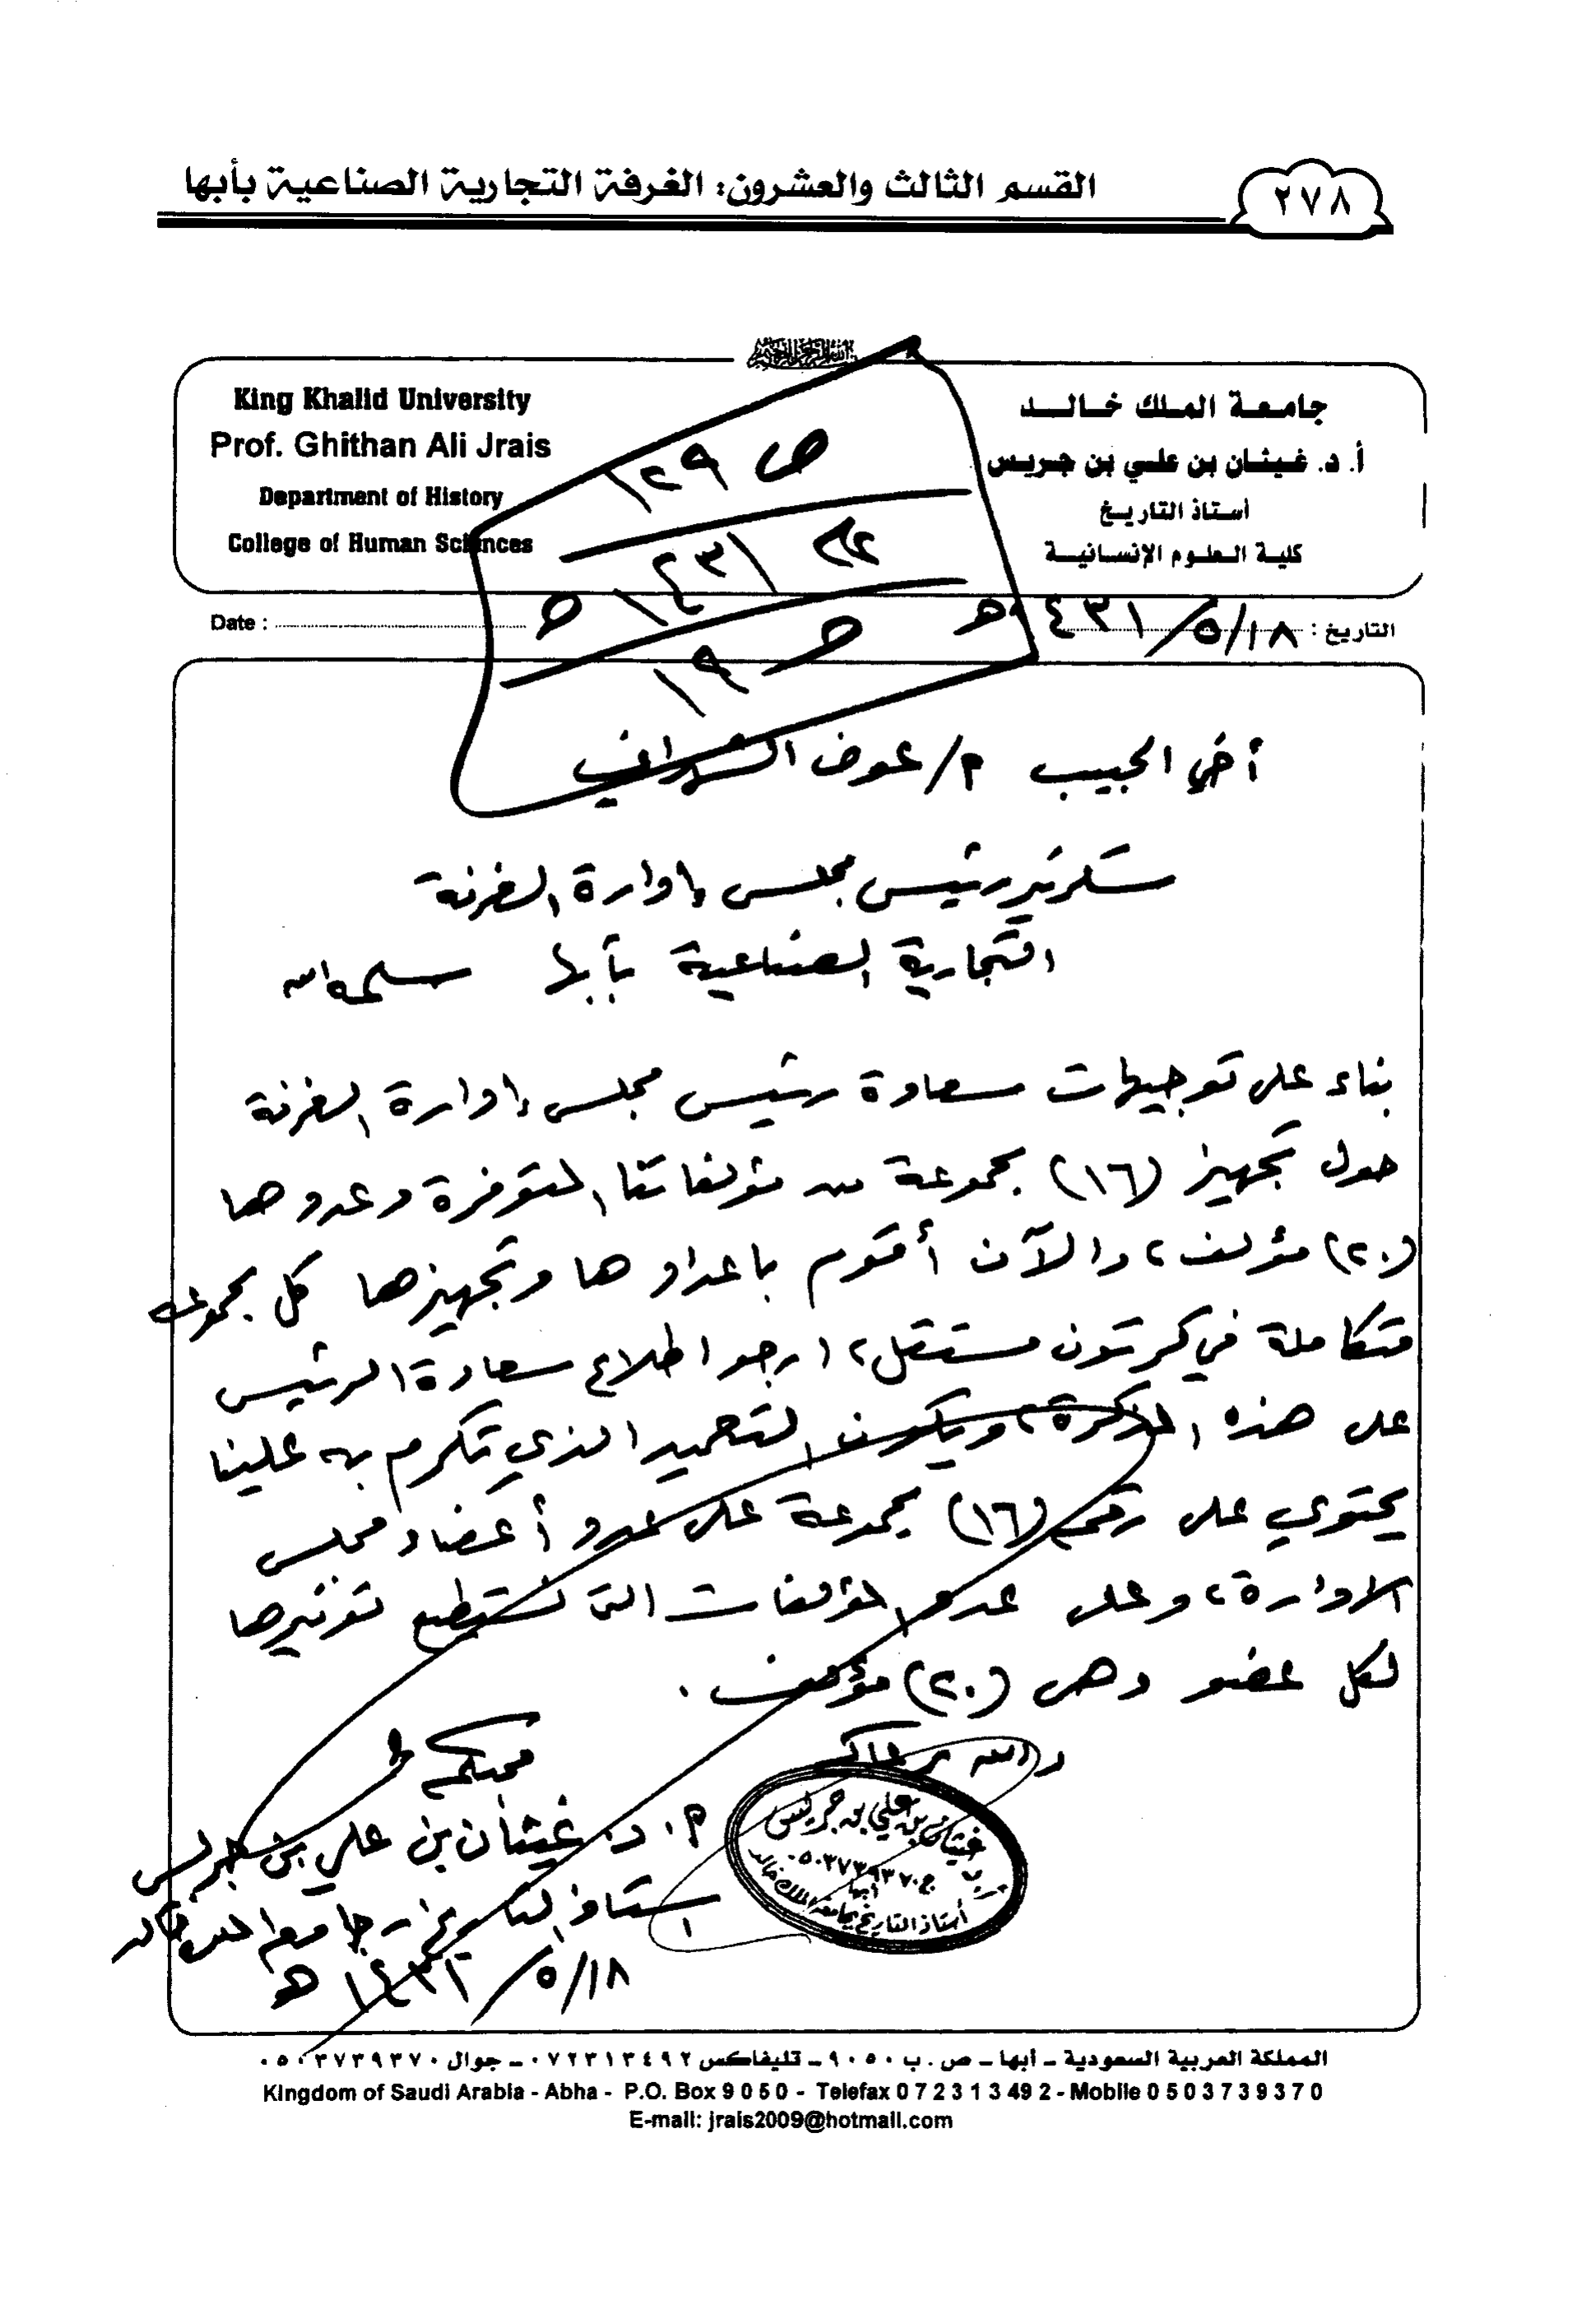 القسم الثالث والعشرون: الغرفة التجارية الصناعية بأبها
٢٧٨
جامعة الملك خالد
أ. د. غيثان بن علي بن جريس
أستاذ التاريخ
كلية العلوم الإنسانية
King Khalid University
Prof. Ghithan Ali Jrais
Department of History
College of Human Sciences
ص ١٢٩
١٤٣١ هـ
١٩
التاريخ : ١٨/٥/١٤٣١هـ
Date :
أخي الحبيب م/ عوض
سكرتير رئيس مجلس إدارة الغرفة
التجارية الصناعية بأبها سلمه الله
بناء على توجيهات سعادة رئيس مجلس إدارة الغرفة
حول تجهيز (١٦) مجموعة من مؤلفاتنا المتوفرة وعددها
(٢٠) مؤلف، والآن أقوم باعدادها وتجهيزها كل مجموعة
متكاملة في كرتون مستقل، ارجو اطلاع سعادة الرئيس
على هذه المذكرة، ويكون التعميد الذي تكرم به علينا
يحتوي على رقم (١٦) مجموعة على عدد أعضاء مجلس
الادارة، وعلى عدد المؤلفات التي نستطيع توفيرها
لكل عضو وهي (٢٠) مؤلف.
والله يرعاكم
محبكم
أ. د. غيثان بن علي بن جريس
استاذ التاريخ بجامعة الملك خالد
١٨/٥/١٤٣١ هـ
غيثان بن علي بن جريس
ج ٠٥٠٣٧٣٩٣٧٠
أبها
أستاذ التاريخ بجامعة الملك خالد
المملكة العربية السعودية ـ أبها ـ ص . ب ٩٠٥٠ ـ تليفاكس ٠٧٢٣١٣٤٩٢ ـ جوال ٠٥٠٣٧٣٩٣٧٠
Kingdom of Saudi Arabia - Abha - P.O. Box 9 0 5 0 - Telefax 0 7 2 3 1 3 49 2 - Mobile 0 5 0 3 7 3 9 3 7 0
E-mail: jrais2009@hotmail.com